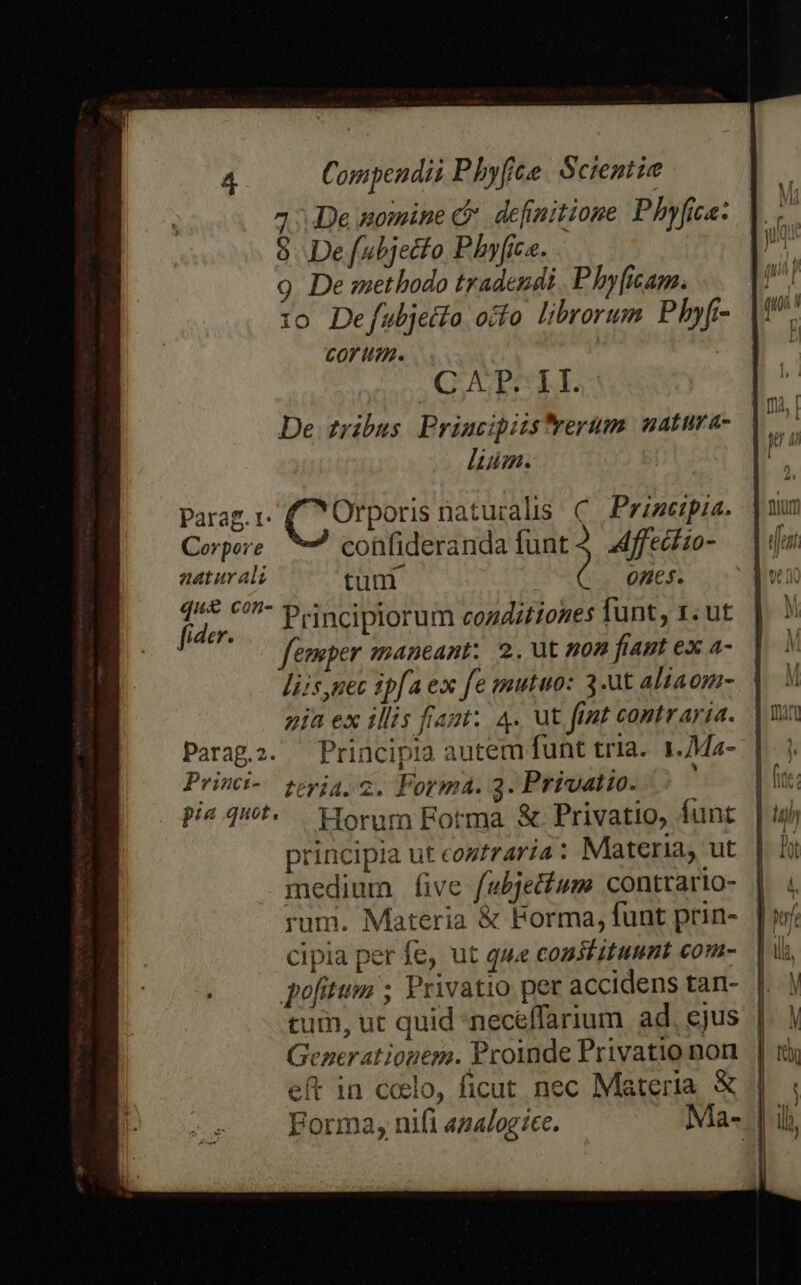 4 Compendii Phyſicæ Scientiæ
7 De nomine & definitione Phyſicæ:
8 De ſubjecto Phyſicæ.
9 De methodo tradendi Phyſicam.
10 De ſubjecto octo librorum Phyſi-
corum.
CAP. II.
De tribus Principiis rerum natura-
lium.
Parag. 1. Corpore naturali quæ con- ſider.
COrporis naturalis conſideranda ſunt tum { Principia. Affectio- ones.
Principiorum conditiones ſunt, 1. ut
ſemper maneant: 2. ut non fiant ex a-
liis, nec ipſa ex ſe mutuo: 3. ut alia om-
nia ex illis fiant: 4. ut ſint contraria.
Parag. 2. Princi- pia quot.
Principia autem ſunt tria. 1. Ma-
teria. 2. Forma. 3. Privatio.
Horum Forma & Privatio, ſunt
principia ut contraria: Materia, ut
medium ſive ſubjectum contrario-
rum. Materia & Forma, ſunt prin-
cipia per ſe, ut quæ conſtituunt com-
poſitum; Privatio per accidens tan-
tum, ut quid neceſſarium ad ejus
Generationem. Proinde Privatio non
eſt in cœlo, ſicut nec Materia &
Forma, niſi analogice.
Ma-